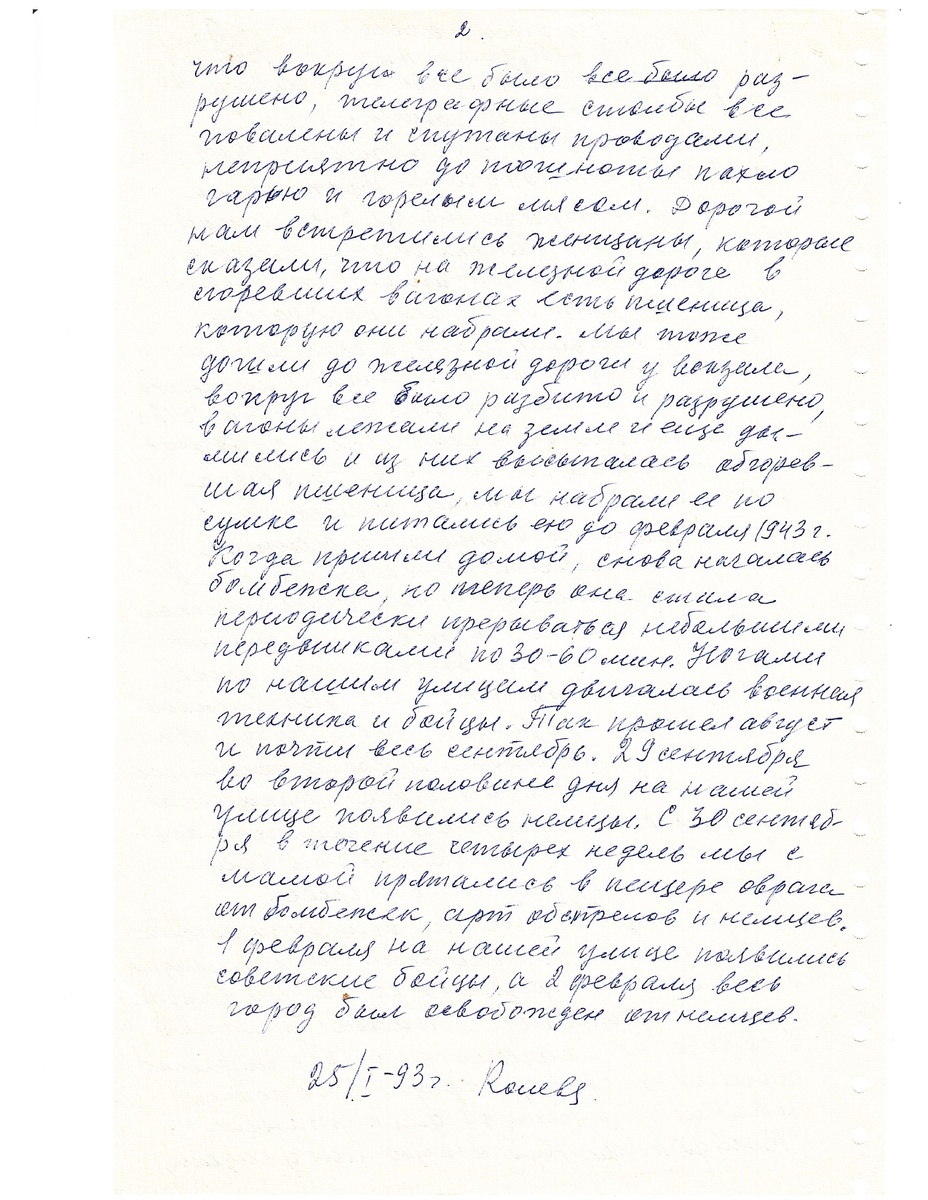 2.
что вокруг все было все было раз-
рушено, телеграфные столбы все
повалены и спутаны проводами,
неприятно до тошноты пахло
гарью и горелым мясом. Дорогой
нам встретились женщины, которые
сказали, что на железной дороге в
сгоревших вагонах есть пшеница,
которую они набрали. Мы тоже
дошли до железной дороги у вокзала,
вокруг все было разбито и разрушено,
вагоны лежали на земле и еще ды-
мились и из них высыпалась обгорев-
шая пшеница, мы набрали ее по
сумке и питались ею до февраля 1943 г.
Когда пришли домой, снова началась
бомбежка, но теперь она стала
периодически прерываться небольшими
передышками по 30-60 мин. Ночами
по нашим улицам двигалась военная
техника и бойцы. Так прошел август
и почти весь сентябрь. 29 сентября
во второй половине дня на нашей
улице появились немцы. С 30 сентяб-
ря в течение четырех недель мы с
мамой прятались в пещере оврага
от бомбежек, арт обстрелов и немцев.
1 февраля на нашей улице появились
советские бойцы, а 2 февраля весь
город был освобожден от немцев.
25/I-93 г.